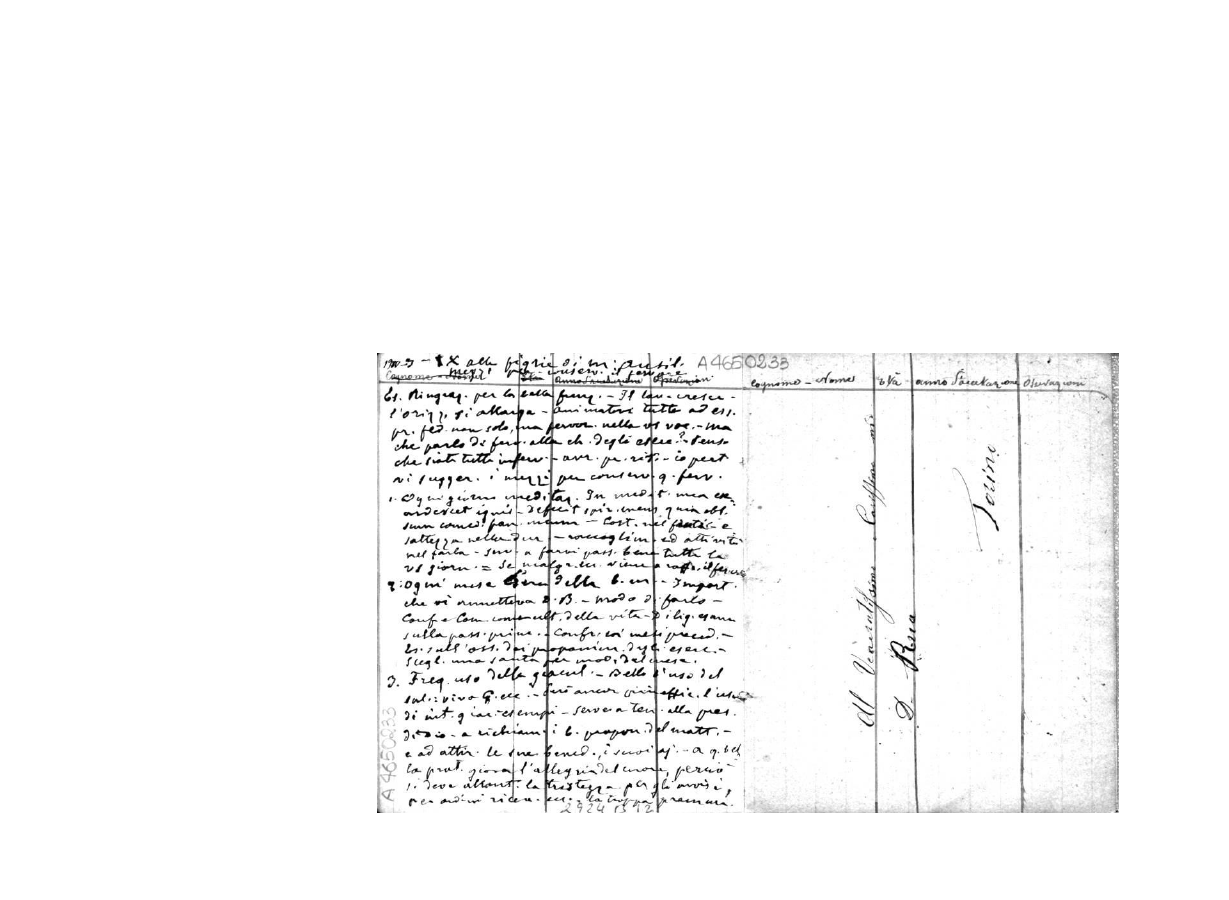 IX alle figlie di M. Ausil. A4650233
mezzi per conserv. il fervore
Cognome - Nome Età Anno Vocazione Osservazioni
Es. Ringraz. per la bella funz. - Il lav. cresce -
l'orizz. si allarga - animatevi tutte ad ess.
pr. fed. non solo, ma fervor. nella vs voc. - ma
che parlo di ferv. alla ch. degli eserc.? Penso
che siate tutte inferv. - avr. pr. ris. - io però
vi sugger. i mezzi per conserv. q. ferv.
1. Ogni giorno meditaz. In medit. mea ex-
ardescet ignis - defecit spir. meus quia obl.
sum comed. pan. meum - Cost. nel farla e
esattezza nella dur. - raccoglim. ed attività
nel farla - serv. a farvi pass. bene tutta la
vs giorn. = Se malgr. ecc. viene a raff. il fervore
2. Ogni mese Eserc. della b. m. - Import.
che vi annetteva D. B. - modo di farlo -
Conf e Com. come ult. della vita - Dilig. esame
sulla pass. princ. - Confr. coi mesi preced. -
Es. sull'oss. dei proponim. degli eserc. -
Scegl. una santa per mod. del mese.
3. Freq. uso delle giacul. - Bello l'uso del
sal.: viva G. ecc. - Però ancor più effic. l'uso
di int. giac. - esempi - serve a ten. alla pres.
di Dio - a richiam. i b. propon. del matt. -
e ad attir. le sue bened., i suoi aj. -
la prat. giova l'allegria del cuore, perciò
si deve allont. la tristezza per gli avvisi,
per ordini ricev. ecc. - la troppa premura.
A4650233
2924 B 92
Cognome - Nome età anno Vocazione Osservazioni
Al Veneratissimo
D. Rua
Torino